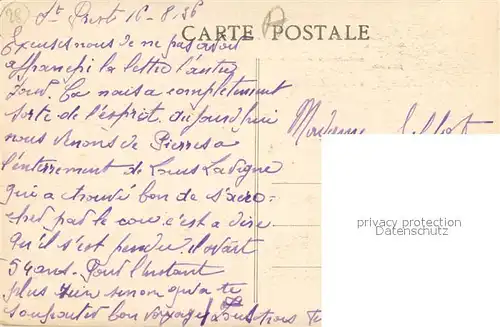 28
St Prest 16-8-36
CARTE POSTALE
Excusez nous de ne pas avoir
affranchi la lettre l'autre
jour. Ça nous a completement
sorti de l'esprit. aujourd'hui
nous venons de Pierres a
l'enterrement de Louis Lavigne
qui a trouvé bon de s'acro-
cher par le cou c'est a dire
qu'il s'est pendu il avait
54 ans. Pour l'instant
plus rien sinon qu'a te
souhaiter bon voyage Tous trois
Madame
privacy protection
Datenschutz